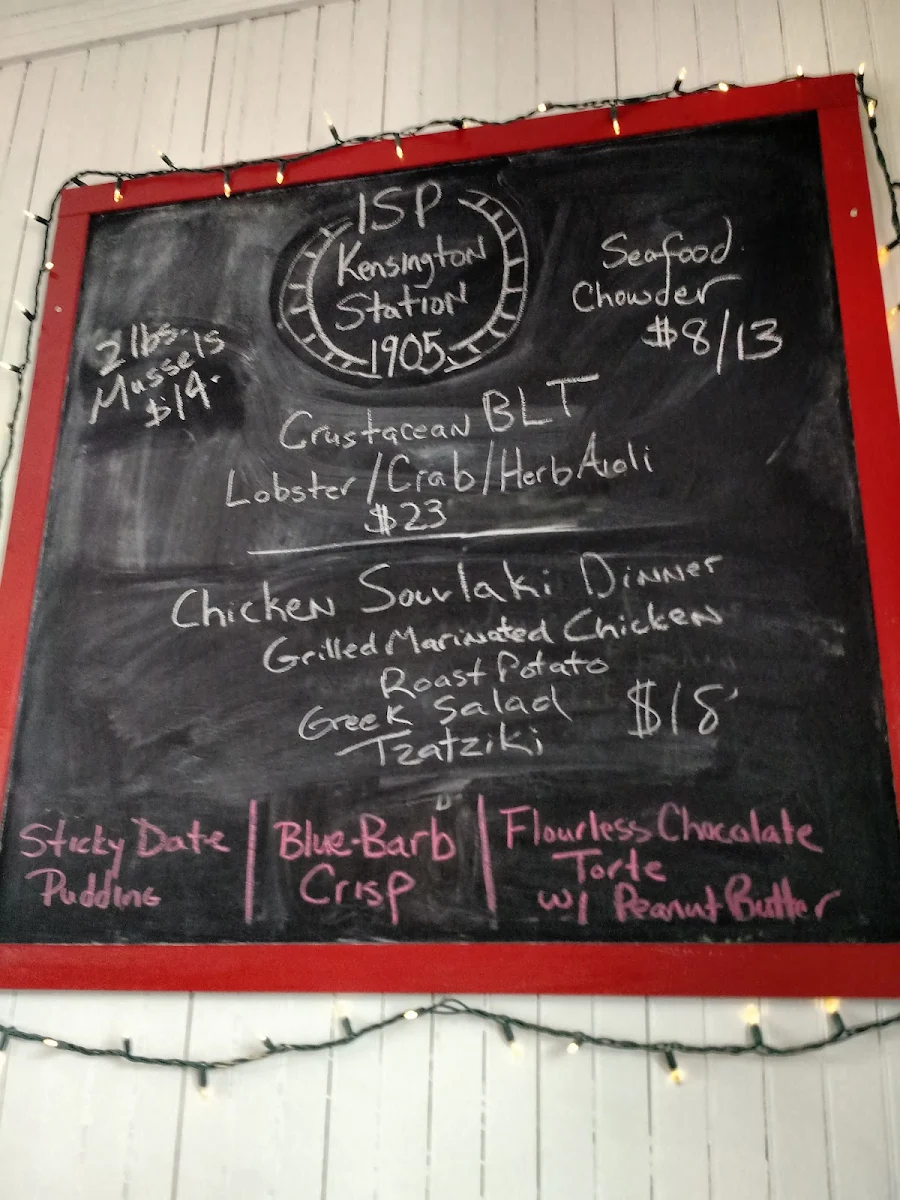 ISP
Kensington
Station
1905
Seafood
Chowder
$8/13
2 lbs.
Mussels
$14.
Crustacean BLT
Lobster/Crab/Herb Aioli
$23
Chicken Souvlaki Dinner
Grilled Marinated Chicken
Roast Potato
Greek Salad
$18
Tzatziki
Sticky Date
Pudding
Blue-Barb
Crisp
Flourless Chocolate
Torte
w/ Peanut Butter